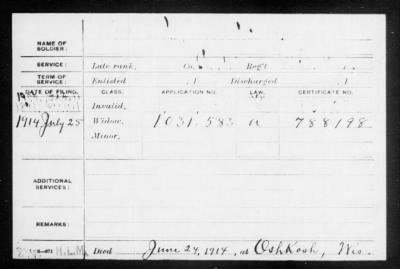 NAME OF
SOLDIER:
SERVICE: Late rank, Co. Reg't
TERM OF
SERVICE: Enlisted , 1 Discharged , 1
DATE OF FILING. CLASS. APPLICATION NO. LAW. CERTIFICATE NO.
Invalid,
1914 July 25 Widow, 1031.583 a 788198
Minor,
ADDITIONAL
SERVICES:
REMARKS:
H.L.M. Died June 24, 1914, at Oshkosh, Wis.